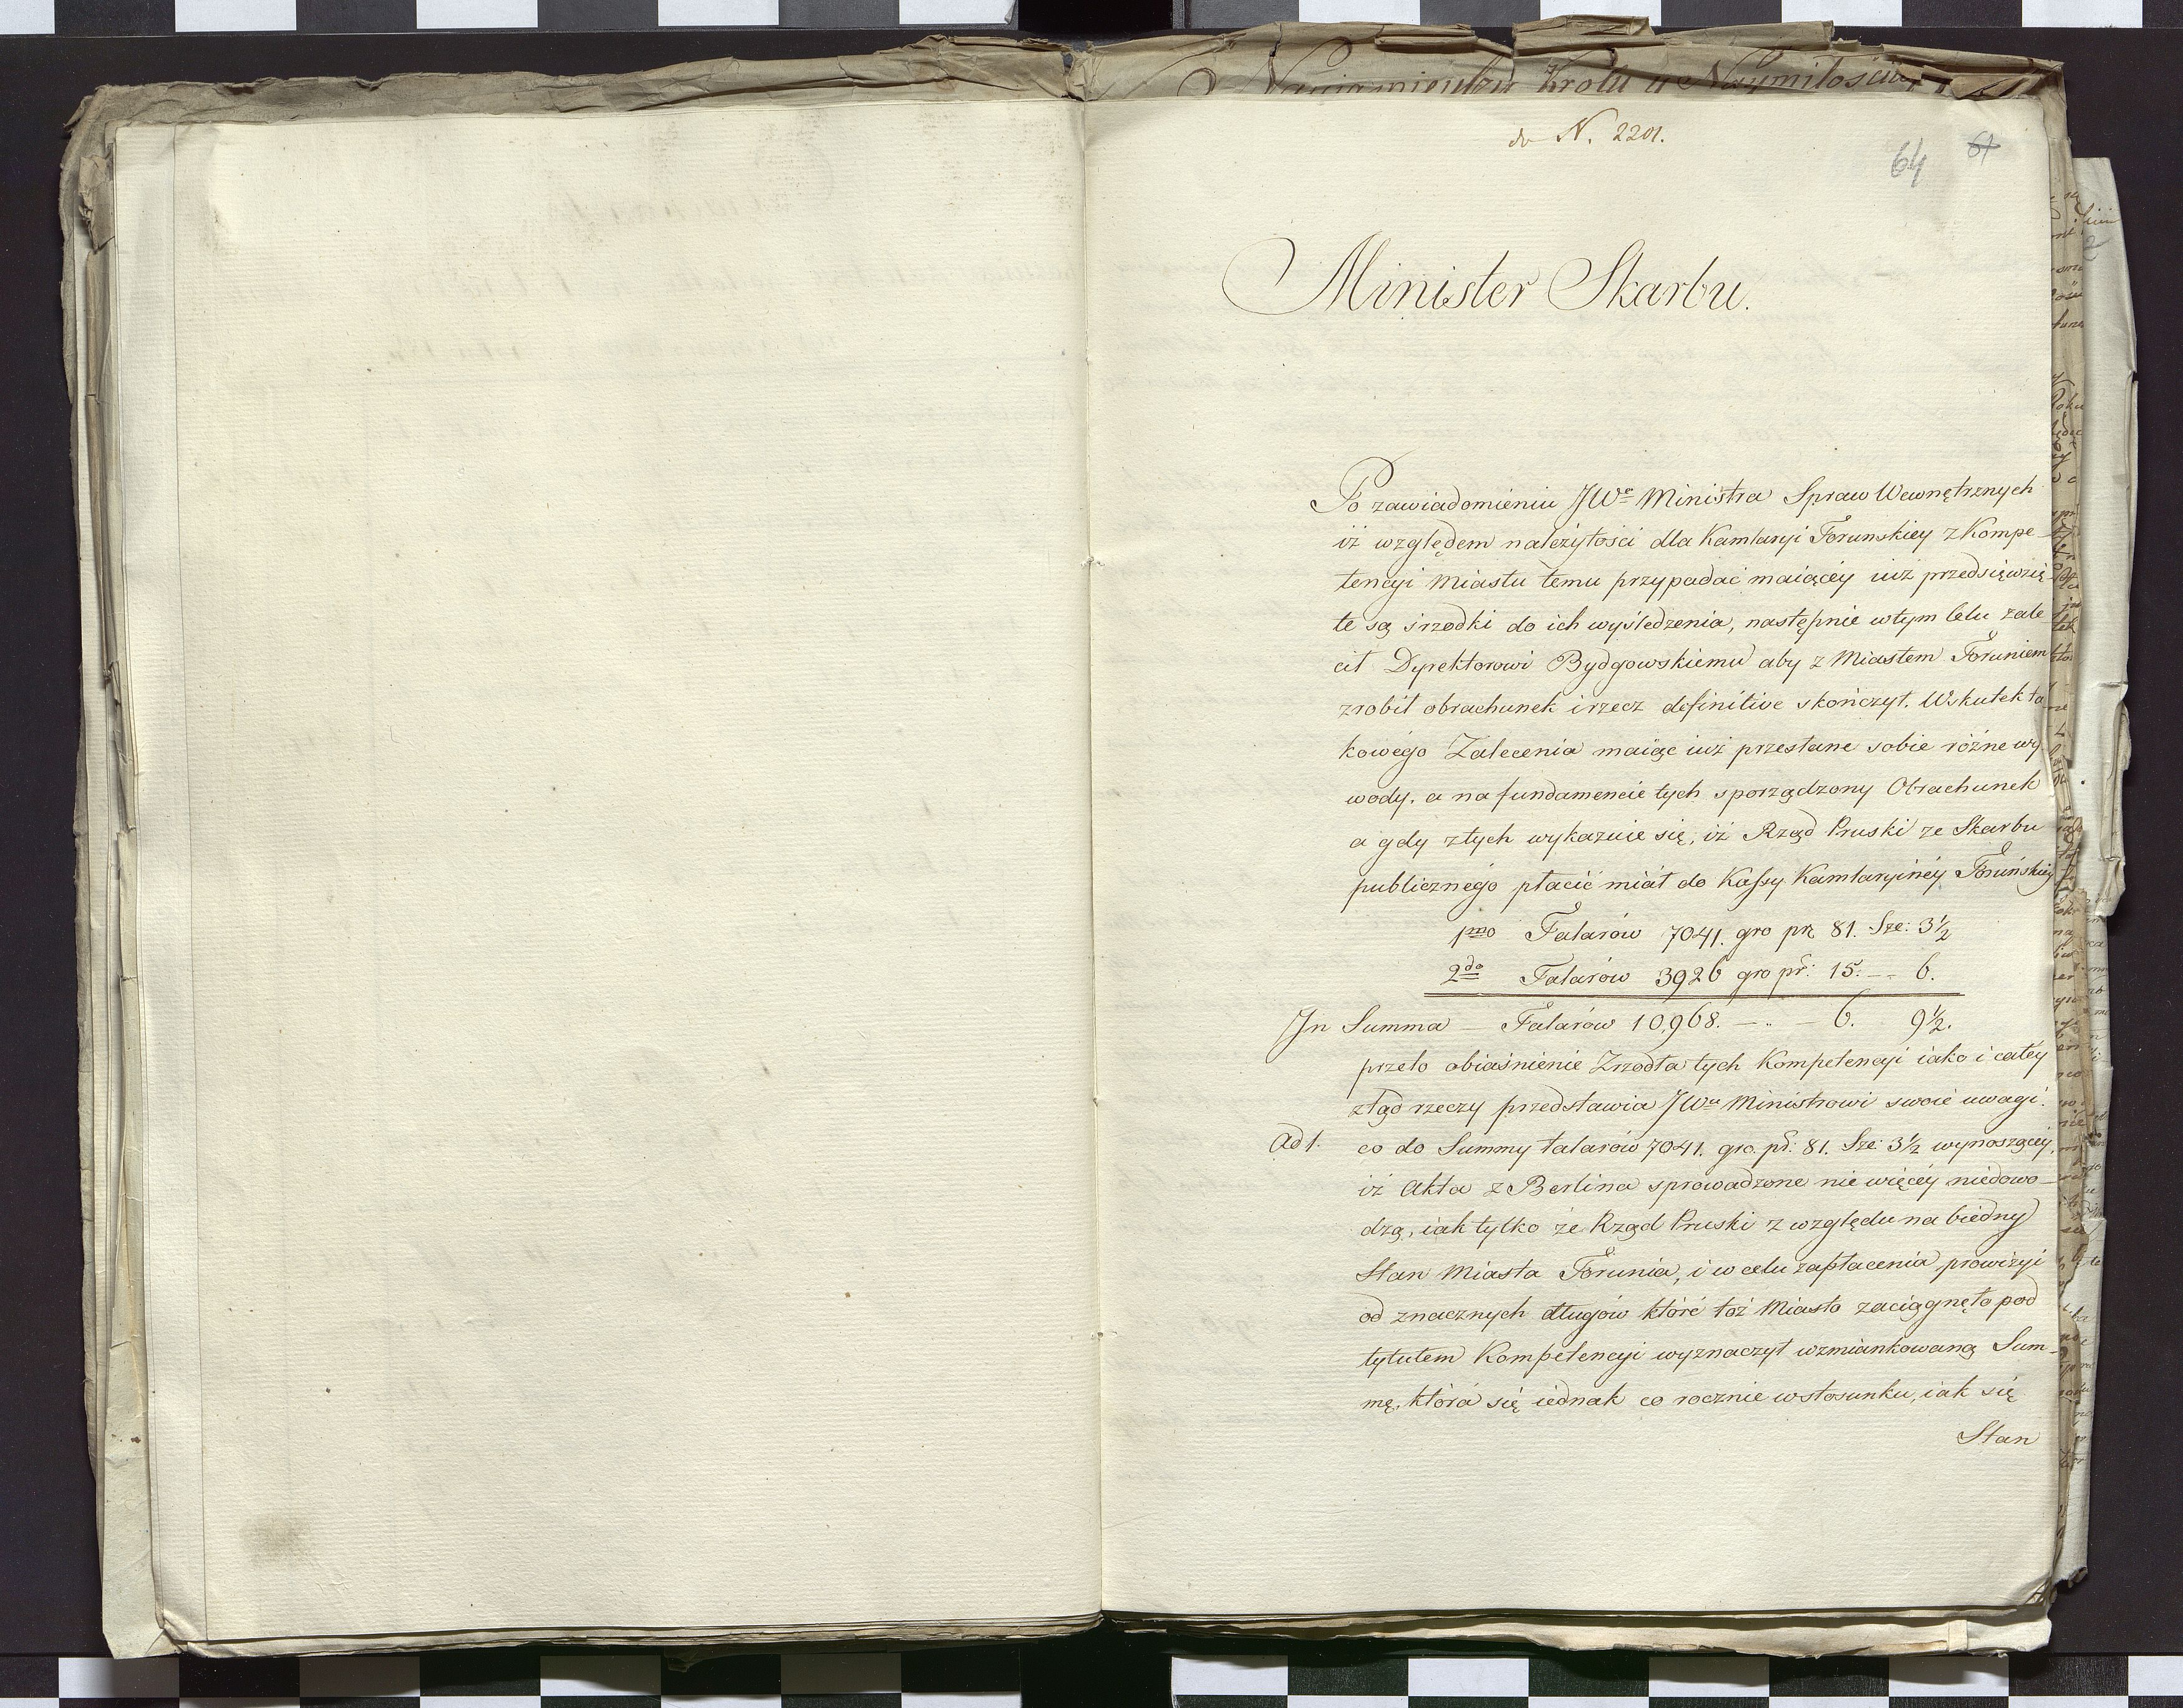 Nayiasnieyszy Krolu a Naymilościw
do N. 2201.
64 61
Minister Skarbu.
Po zawiadomieniu JWo Ministra Spraw Wewnętrznych
iż względem należytości dla Kamlaryi Torunskiey z Kompe-
tencyi Miastu temu przypadać maiącéy iuż przedsięwzię-
te są śrzodki do ich wyśledzenia, następnie w tym Celu zale
cił Dyrektorowi Bydgowskiemu aby z Miastem Toruniem
zrobił obrachunek i rzecz definitive skończył. Wskutek ta-
kowégo Zalecenia maiąc iuż przesłane sobie różne wy-
wody, a na fundamencie tych sporządzony Obrachunek
a gdy z tych wykazuie się, iż Rząd Pruski ze Skarbu
publicznégo płacić miał do Kassy Kamlaryinéy Toruńskiéy
1mo Talarów 7041. gro pr. 81. Sze: 3½
2do Talarów 3926 gro pr: 15. -- 6.
Jn Summa — Talarów 10,968. — .. — 6. 9½.
przeto obiaśnienie Zrzodła tych Kompetencyi iako i całéy
ztąd rzeczy przedstawia JWu Ministrowi swoie uwagi.
Ad 1. co do Summy talarów 7041. gro. pr: 81. Sze: 3½ wynoszącéy,
iż Akta z Berlina sprowadzone nie więcéy niedowo-
dzą, iak tylko że Rząd Pruski z względu na biedny
Stan Miasta Torunia, i w celu zapłacenia prowizyi
od znacznych długów któré toż Miasto zaciągnęło pod
tytułem Kompetencyi wyznaczył wzmiankowaną Sum-
mę, która się iednak co rocznie w stosunku, iak się
Stan